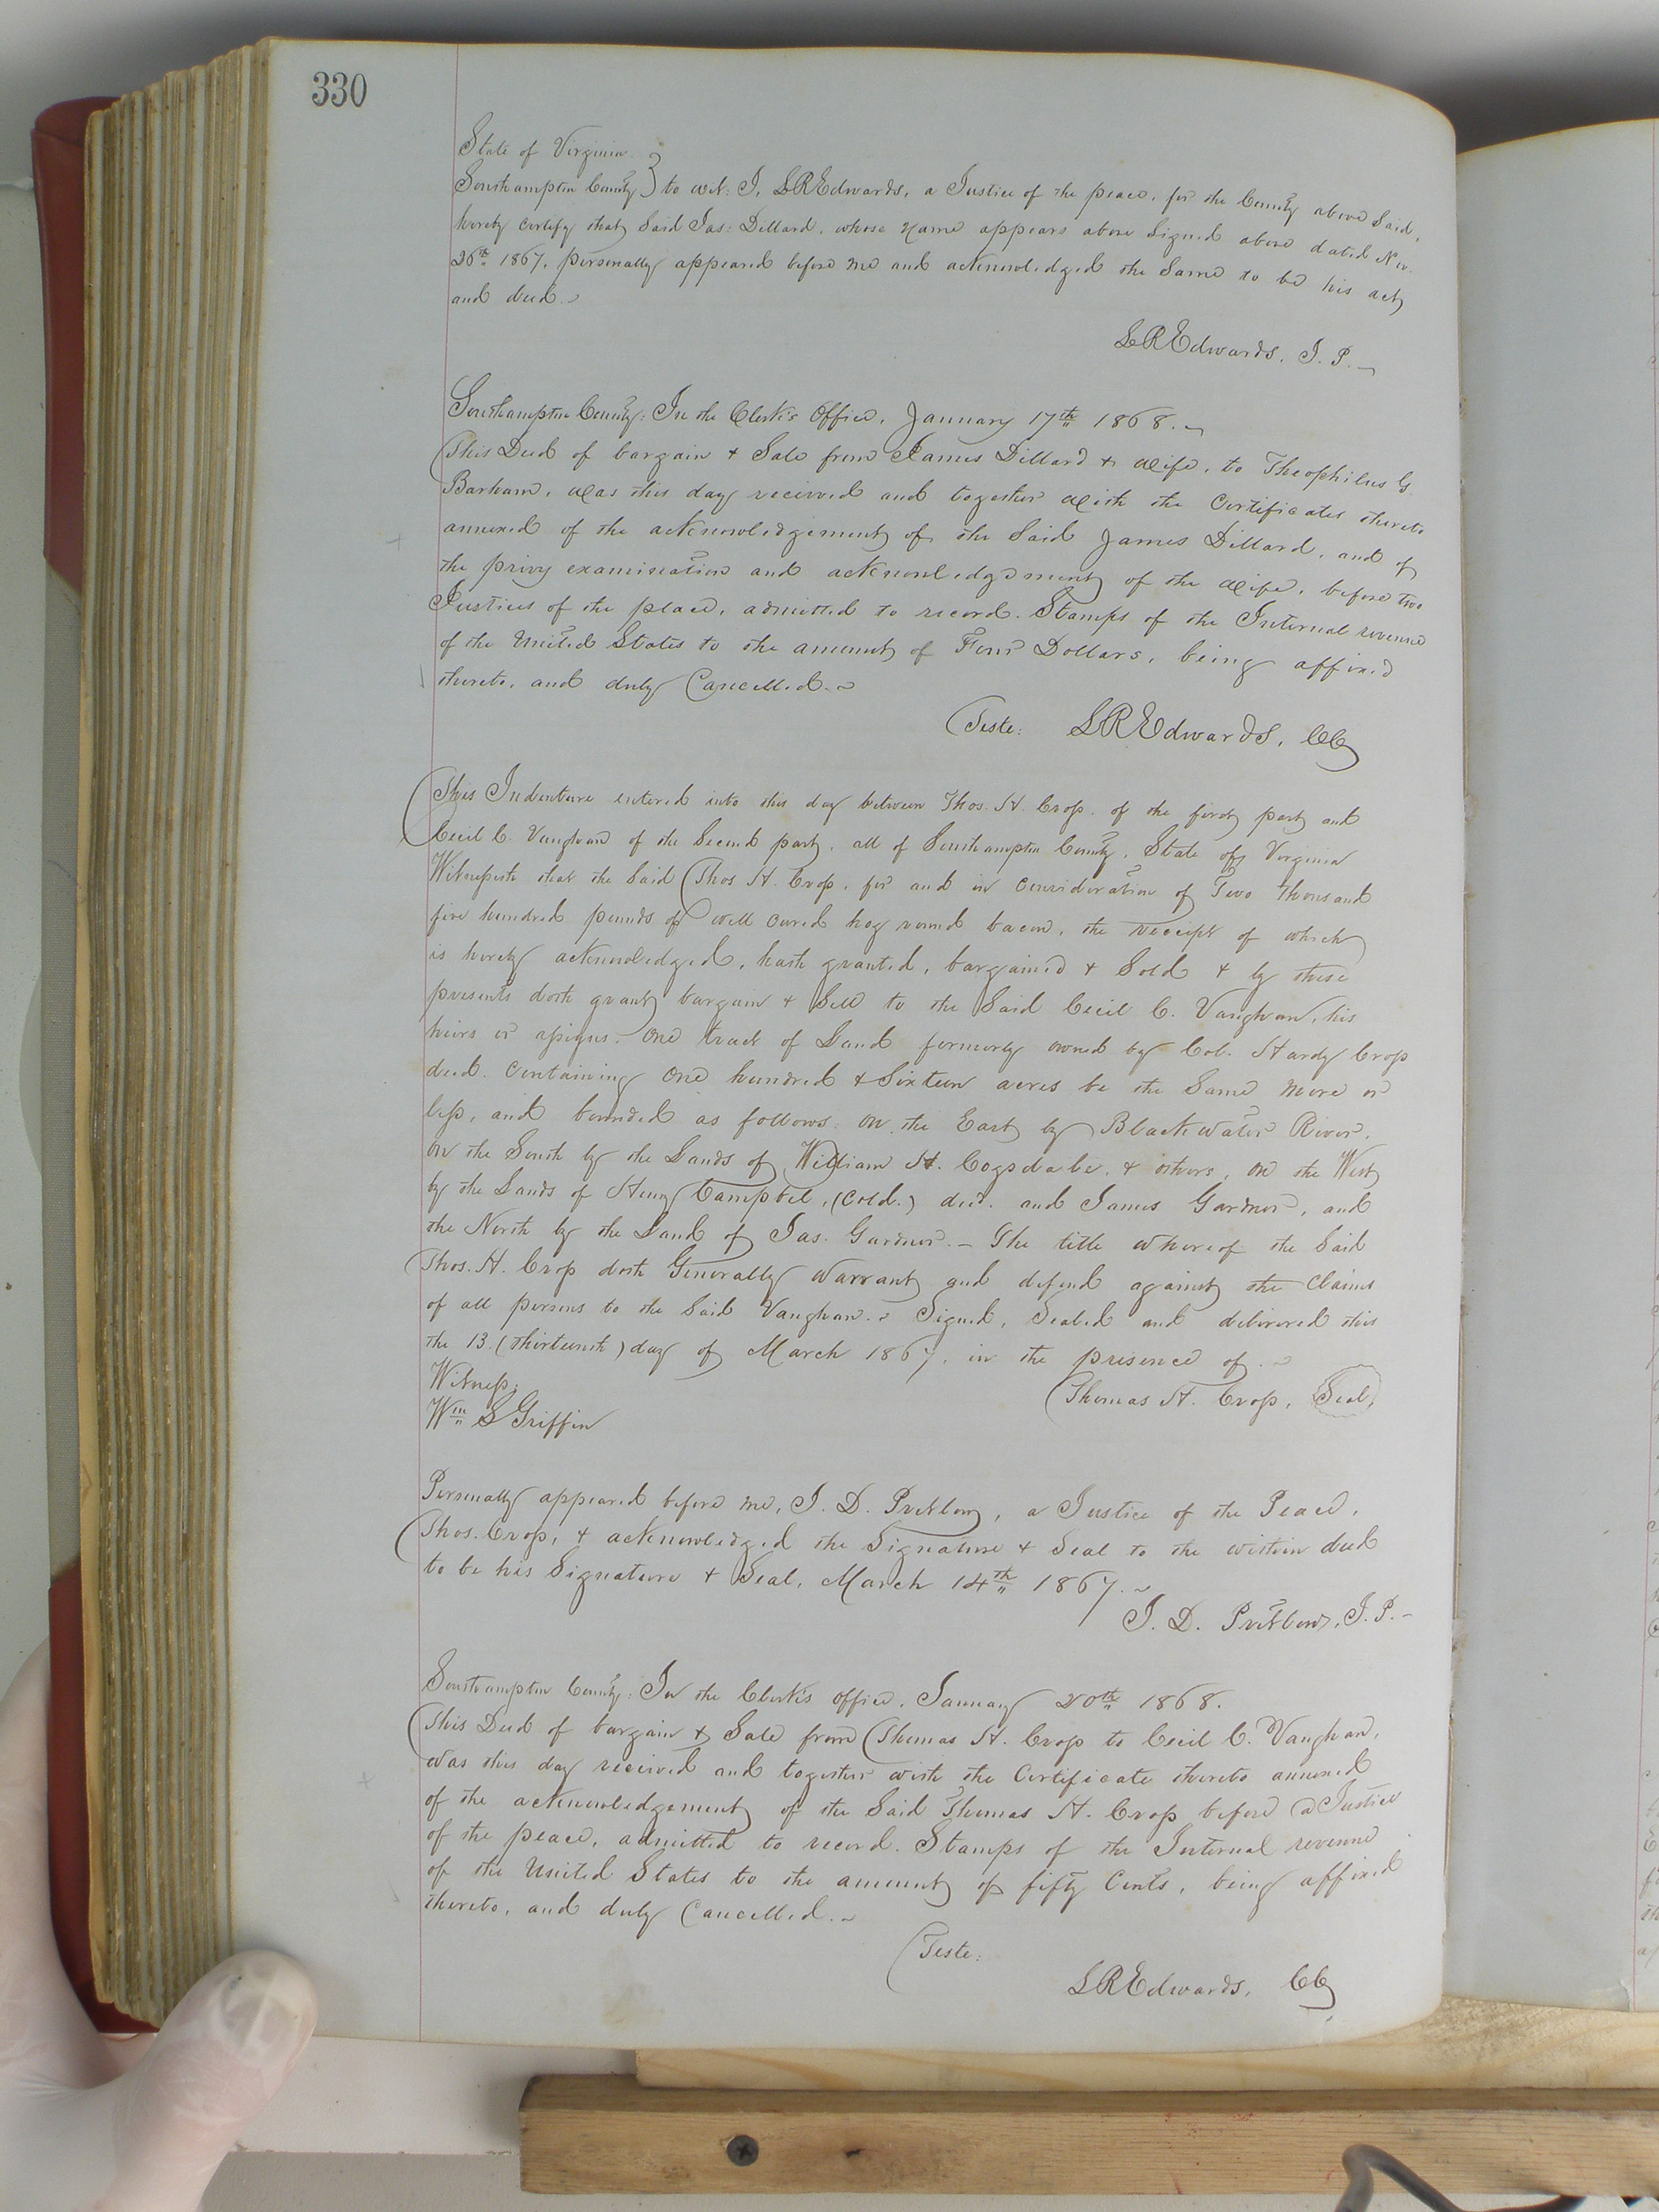 330
State of Virginia
Southampton County } to wit: I, L R Edwards, a Justice of the peace, for the County above Said,
hereby certify that Said Jas: Dillard, whose name appears above Signed above dated Nov.
26th 1867, personally appeared before me and acknowledged the Same to be his act
and deed.
L R Edwards, J. P.
Southampton County: In the Clerk's Office, January 17th 1868.
This Deed of bargain & Sale from James Dillard & wife, to Theophilus G.
Barham, was this day received and together with the Certificates thereto
annexed of the acknowledgement of the Said James Dillard, and of
the privy examination and acknowledgement of the wife, before two
Justices of the peace, admitted to record. Stamps of the Internal revenue
of the United States to the amount of Four Dollars, being affixed
thereto, and duly Cancelled.
Teste: L R Edwards, CC
This Indenture entered into this day between Thos. H. Crop. of the first part and
Cecil C. Vaughan of the Second part, all of Southampton County, State of Virginia
Witnesseth that the Said Thos H. Crop, for and in consideration of Two thousand
five hundred pounds of well cured hog round bacon, the receipt of which
is hereby acknowledged, hath granted, bargained & Sold & by these
presents doth grant bargain & Sell to the Said Cecil C. Vaughan, his
heirs or assigns. One tract of Land formerly owned by Col. Hardy Crop
decd. Containing One hundred & Sixteen acres be the Same more or
less, and bounded as follows: On the East by Blackwater River,
On the South by the Lands of William H. Cogsdale, & others, On the West
by the Lands of Henry Campbel, (Cold.) decd. and James Gardner, and
the North by the Land of Jas. Gardner. – The title whereof the Said
Thos. H. Crop doth Generally Warrant and defend against the Claims
of all persons to the Said Vaughan. Signed, Sealed and delivered this
the 13. (thirteenth) day of March 1867, in the presence of.
Witness;
Thomas H. Crop, Seal,
Wm S Griffin
Personally appeared before me, J. D. Pretlow, a Justice of the Peace,
Thos. Crop, & acknowledged the Signature & Seal to the within deed
to be his Signature & Seal, March 14th 1867.
J. D. Pretlow, J. P. –
Southampton County: In the Clerk's office, January 20th 1868.
This Deed of bargain & Sale from Thomas H. Crop to Cecil C. Vaughan,
was this day received and together with the Certificate thereto annexed
of the acknowledgement of the Said Thomas H. Crop before a Justice
of the peace, admitted to record. Stamps of the Internal revenue
of the United States to the amount of fifty Cents, being affixed
thereto, and duly Cancelled.
Teste:
L R Edwards, CC